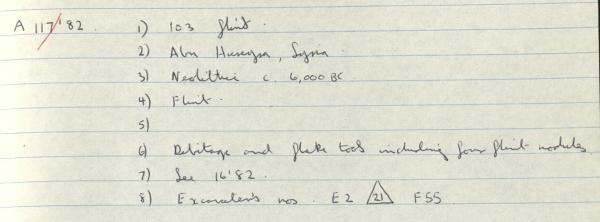 A 117'82. 1) 103 flint.
2) Abu Hureyra, Syria.
3) Neolithic c. 6,000 BC
4) Flint.
5)
6) Debitage and flake tools including four flint nodules
7) See 16'82.
8) Excavator's nos. E2 21 F55